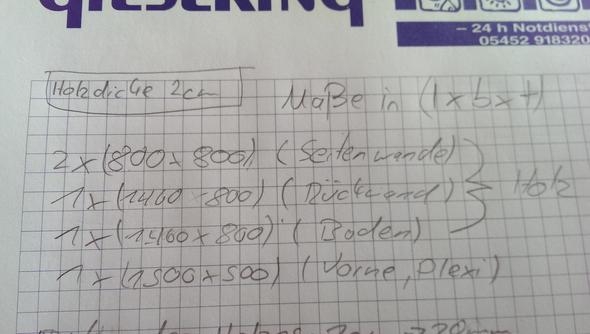 GIESEKING
– 24 h Notdiens
05452 918320
Holzdicke 2cm
Maße in (l x b x t)
2x(800x800) (Seitenwände)
1x(1460x800) (Rückwand)
1x(1460x800) (Boden)
Holz
1x(1500x500) (Vorne, Plexi)